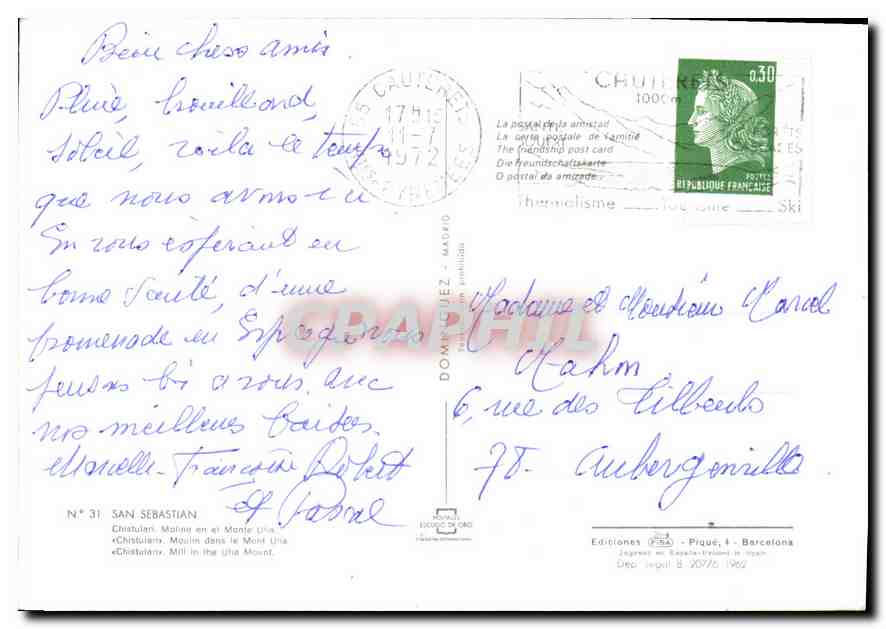 Bien chers amis
Pluie, brouillard,
soleil, voila le temps
que nous avons eu
En vous espérant en
bonne santé, d'une
promenade en Espagne nous
pensons bien à vous. Avec
nos meilleurs baisers.
Marcelle - Françoise Robert
et Pascal
N.° 31 SAN SEBASTIAN
Chistulari. Molino en el Monte Ulía.
«Chistulari». Moulin dans le Mont Ulía
«Chistulari». Mill in the Ulía Mount.
65 CAUTERETS
17H15
11-7
1972
HTES PYRENEES
CAUTERETS
1000m
Thermalisme Tourisme Ski
La postal de la amistad
La carte postale de l'amitié
The friendship post card
Die Freundschaftskarte
O postal da amizade
0,30
POSTES
REPUBLIQUE FRANÇAISE
DOMINGUEZ - MADRID
prohibida
CPAPHIL
Madame et Monsieur Marcel
Mahon
6, rue des Tilleuls
78 - Aubergenville
POSTALES
ESCUDO DE ORO
Ediciones FISA - Piqué, 4 - Barcelona
Impreso en España-Printed in Spain
Dep. legal B. 20776-1962